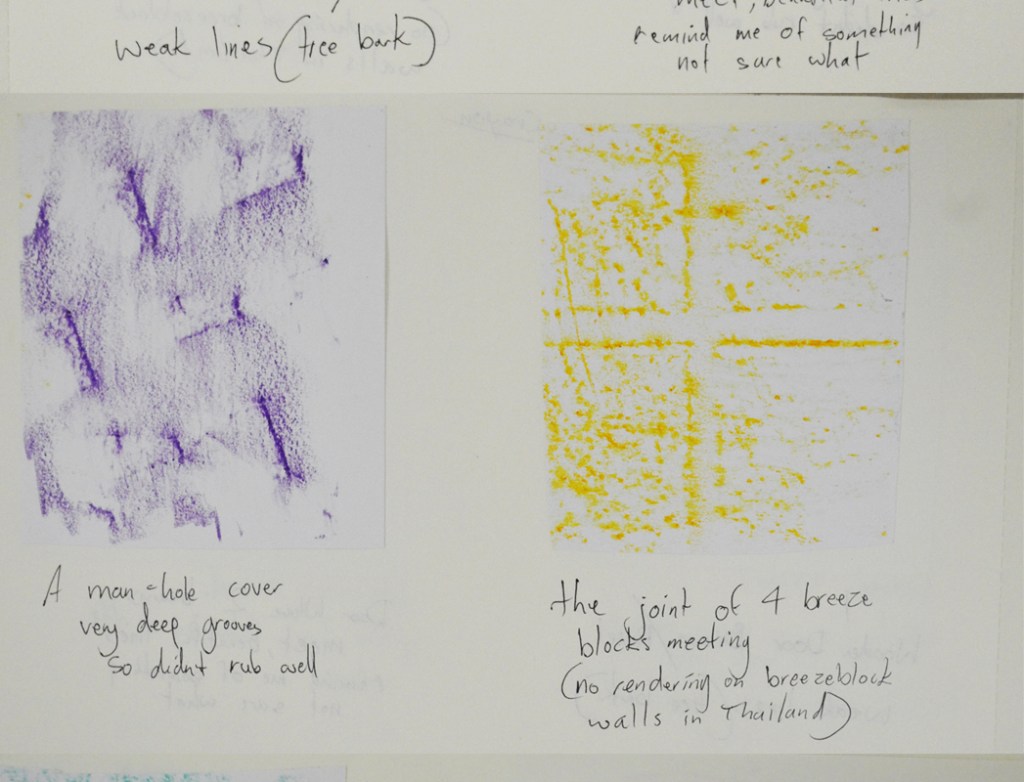 weak lines (tree bark)
remind me of something
not sure what
A man-hole cover
very deep grooves
so didn't rub well
the joint of 4 breeze
blocks meeting
(no rendering on breezeblock
walls in Thailand)